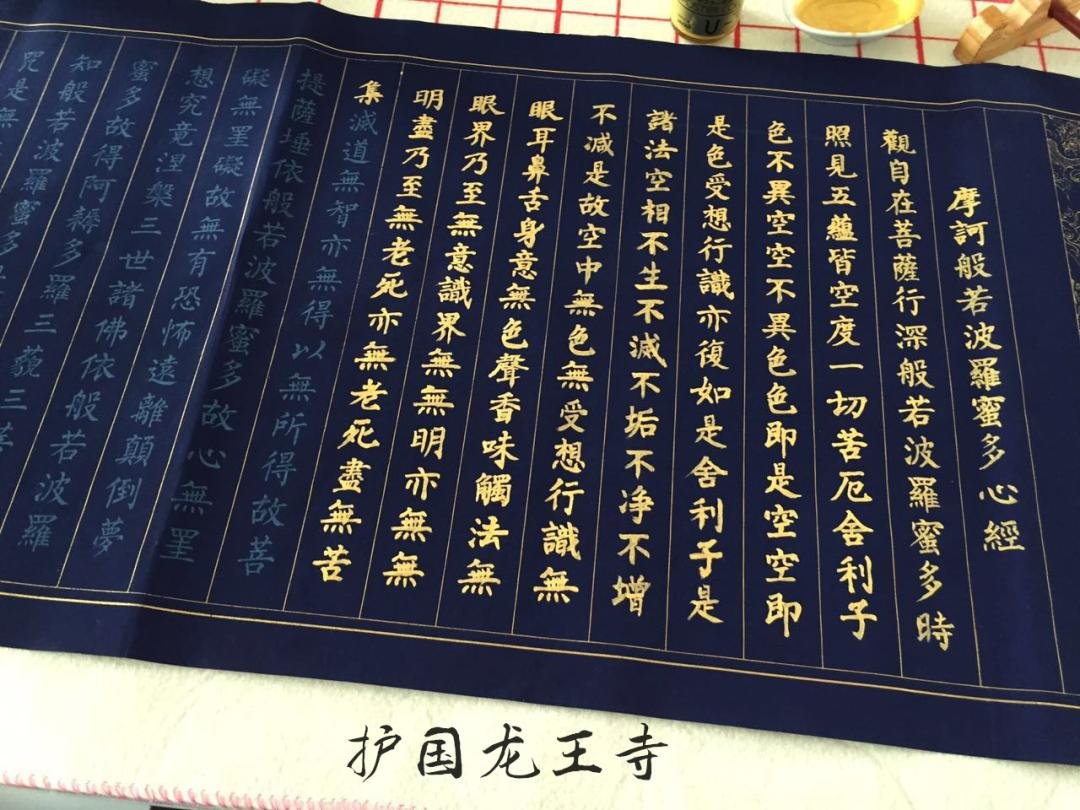 摩訶般若波羅蜜多心經
觀自在菩薩行深般若波羅蜜多時
照見五蘊皆空度一切苦厄舍利子
色不異空空不異色色即是空空即
是色受想行識亦復如是舍利子是
諸法空相不生不滅不垢不净不增
不減是故空中無色無受想行識無
眼耳鼻舌身意無色聲香味觸法無
眼界乃至無意識界無無明亦無無
明盡乃至無老死亦無老死盡無苦
集滅道無智亦無得以無所得故菩
提薩埵依般若波羅蜜多故心無罣
礙無罣礙故無有恐怖遠離顛倒夢
想究竟涅槃三世諸佛依般若波羅
蜜多故得阿耨多羅三藐三菩
知般若波羅蜜多
咒是無
U
护国龙王寺